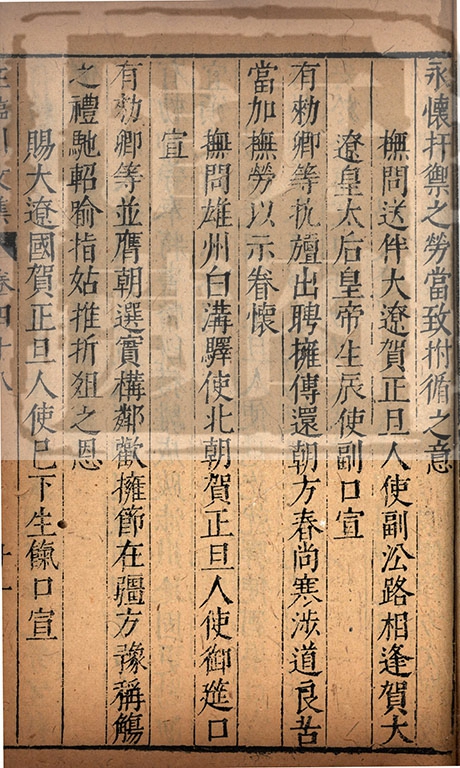 永懷扞禦之勞當致拊循之意
撫問送伴大遼賀正旦人使副㳂路相逢賀大
遼皇太后皇帝生辰使副口宣
有勑卿等執䄠出聘擁傳還朝方春尚寒涉道良苦
當加撫勞以示眷懷
撫問雄州白溝驛使北朝賀正旦人使御筵口
宣
有勑卿等並膺朝選實構鄰歡擁節在疆方豫稱觴
之禮馳軺喻指姑推折俎之恩
賜大遼國賀正旦人使巳下生餼口宣
王臨川文集
卷四十八
十一